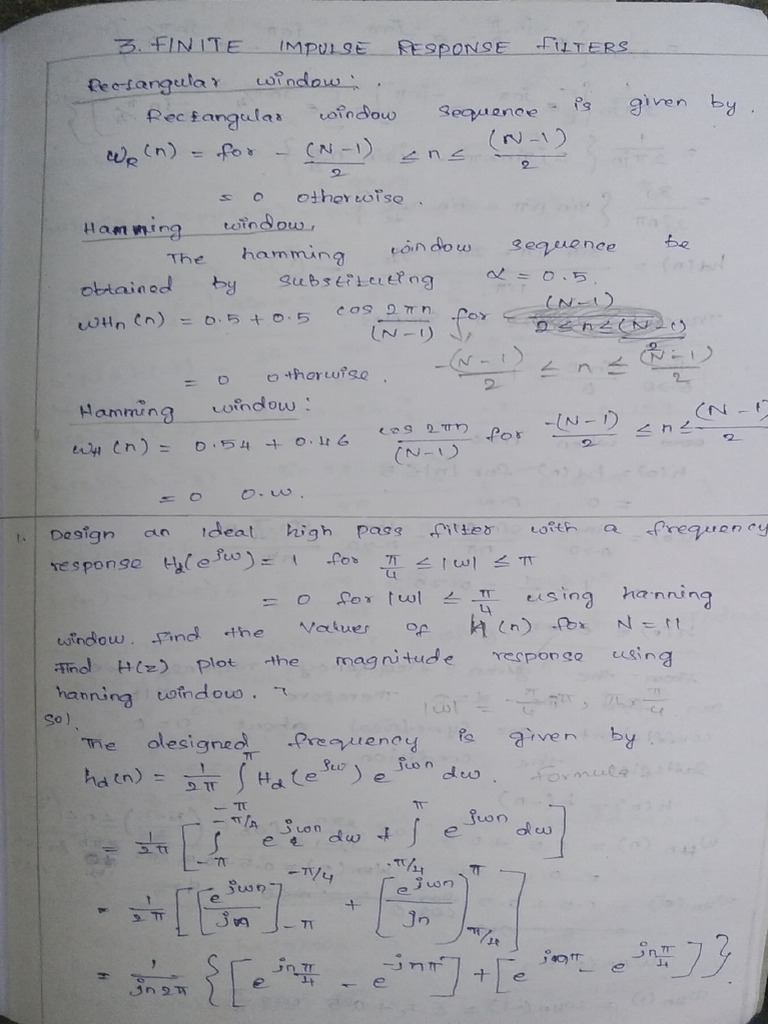 3. FINITE IMPULSE RESPONSE FILTERS
Rectangular window:
Rectangular window sequence is given by.
ωR(n) = for -(N-1)/2 ≤ n ≤ (N-1)/2
= 0 otherwise.
Hamming window,
The hamming window sequence be
obtained by substituting α = 0.5.
WHn(n) = 0.5 + 0.5 cos 2πn/(N-1) for
-(N-1)/2 ≤ n ≤ (N-1)/2
= 0 otherwise.
Hamming window:
WH(n) = 0.54 + 0.46 cos 2πn/(N-1) for -(N-1)/2 ≤ n ≤ (N-1)/2
= 0 O.W.
1. Design an ideal high pass filter with a frequency
response Hd(e^jω) = 1 for π/4 ≤ |ω| ≤ π
= 0 for |ω| ≤ π/4 using hanning
window. find the values of H(n) for N = 11
find H(z) plot the magnitude response using
hanning window. ?
Sol.
The designed frequency is given by.
hd(n) = 1/2π ∫_-π^π Hd(e^jω) e^jωn dω. formula
= 1/2π [∫_-π^-π/4 e^jωn dω + ∫_π/4^π e^jωn dω]
= 1/2π [[e^jωn/jn]_-π^-π/4 + [e^jωn/jn]_π/4^π]
= 1/jn2π {[e^jnπ/4 - e^-jnπ] + [e^jnπ - e^jnπ/4]}